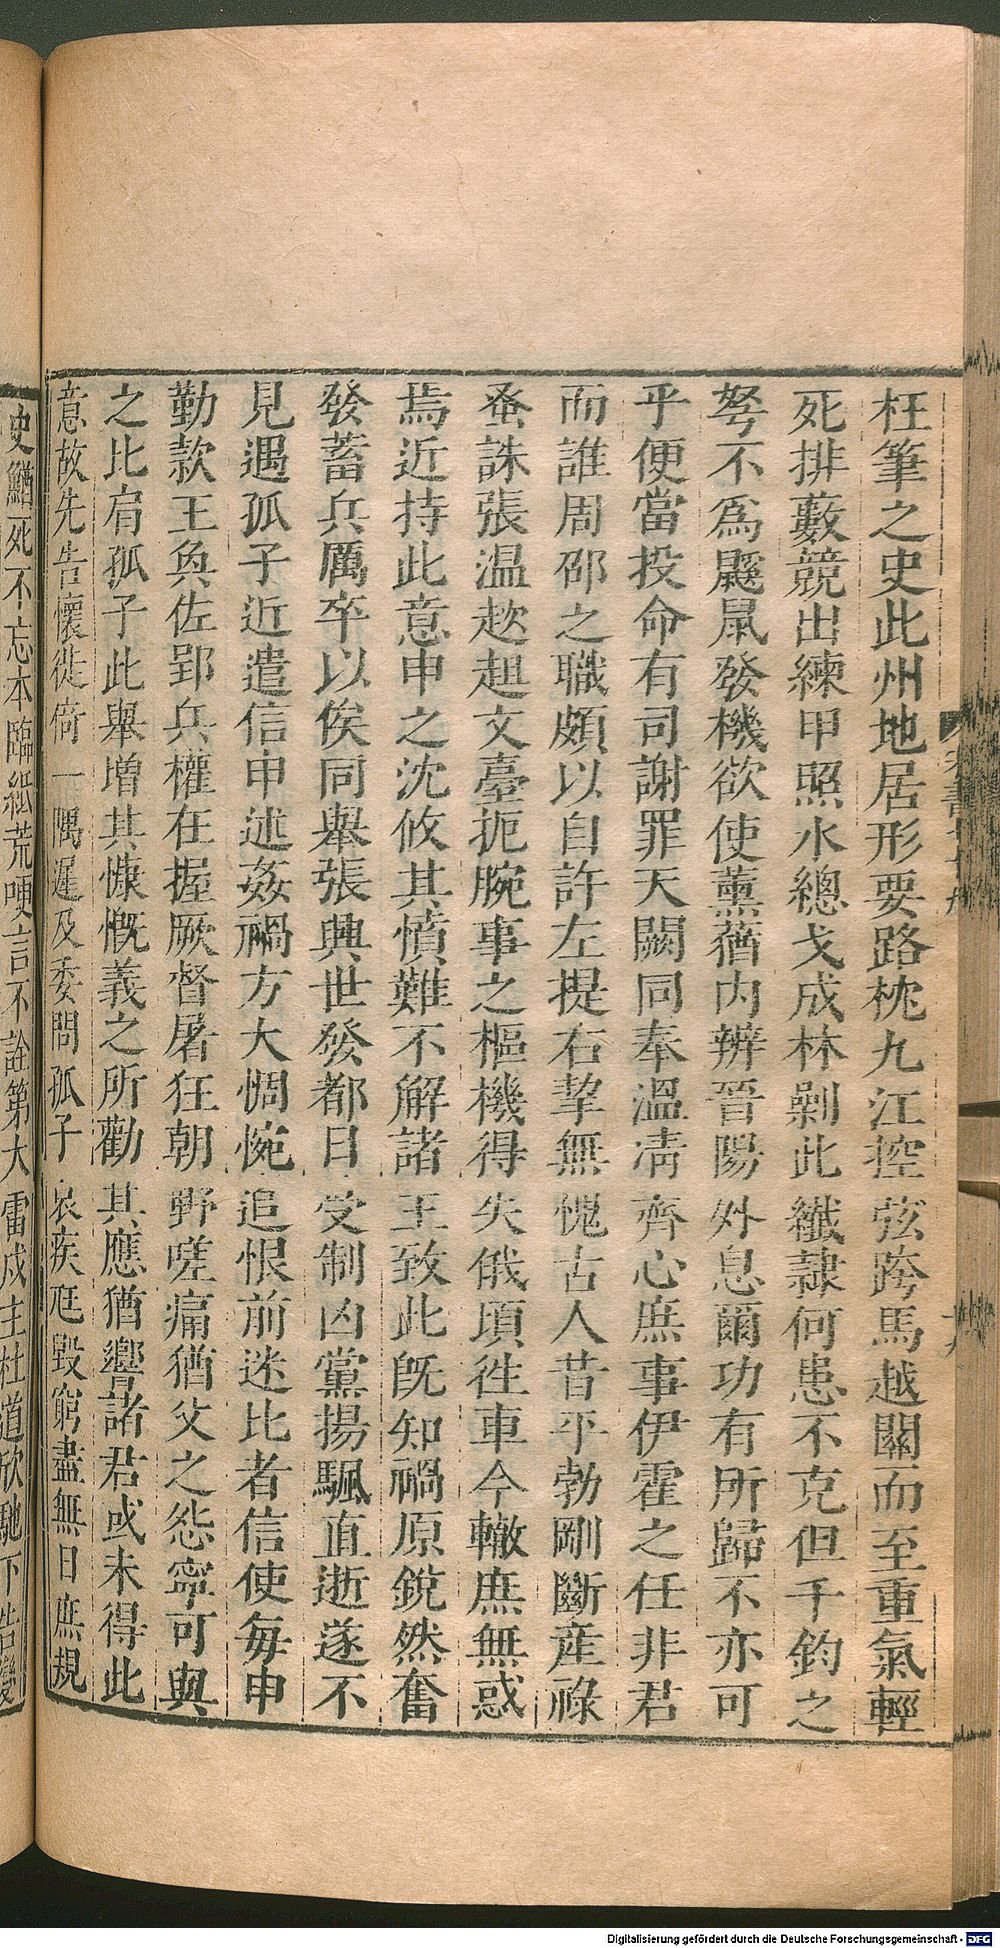 枉筆之史此州地居形要路枕九江控弦跨馬越關而至重氣輕
死排藪競出練甲照水總戈成林剿此纖隸何患不克但千鈞之
弩不爲鼷鼠發機欲使薰蕕內辨晉陽外息爾功有所歸不亦可
乎便當投命有司謝罪天闕同奉溫凊齊心庶事伊霍之任非君
而誰周邵之職頗以自許左提右挈無愧古人昔平勃剛斷産祿
蚤誅張温趑趄文臺扼腕事之樞機得失俄頃徃車今轍庶無惑
焉近持此意申之沈攸其憤難不解諸王致此既知禍原銳然奮
發蓄兵厲卒以俟同舉張興世發都日受制凶黨揚颿直逝遂不
見遇孤子近遣信申述姦禍方大惆惋追恨前迷比者信使每申
勤款王奐佐郢兵權在握厥督屠狂朝野嗟痛猶父之怨寧可與
之比肩孤子此舉增其慷慨義之所勸其應猶響諸君或未得此
意故先告懷徙倚一隅遲及委問孤子哀疾尫毀窮盡無日庶規
史鰌死不忘本臨紙荒哽言不詮第大雷戍主杜道欣馳下告變
Digitalisierung gefördert durch die Deutsche Forschungsgemeinschaft - DFG